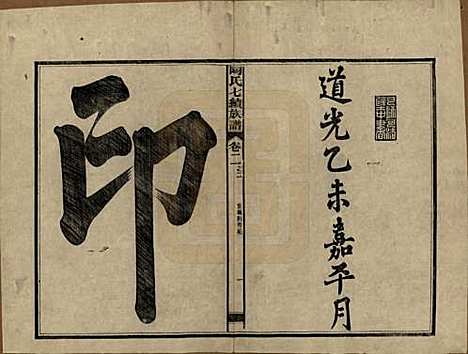 道光乙未嘉平月
陶氏七續族譜
卷二
印